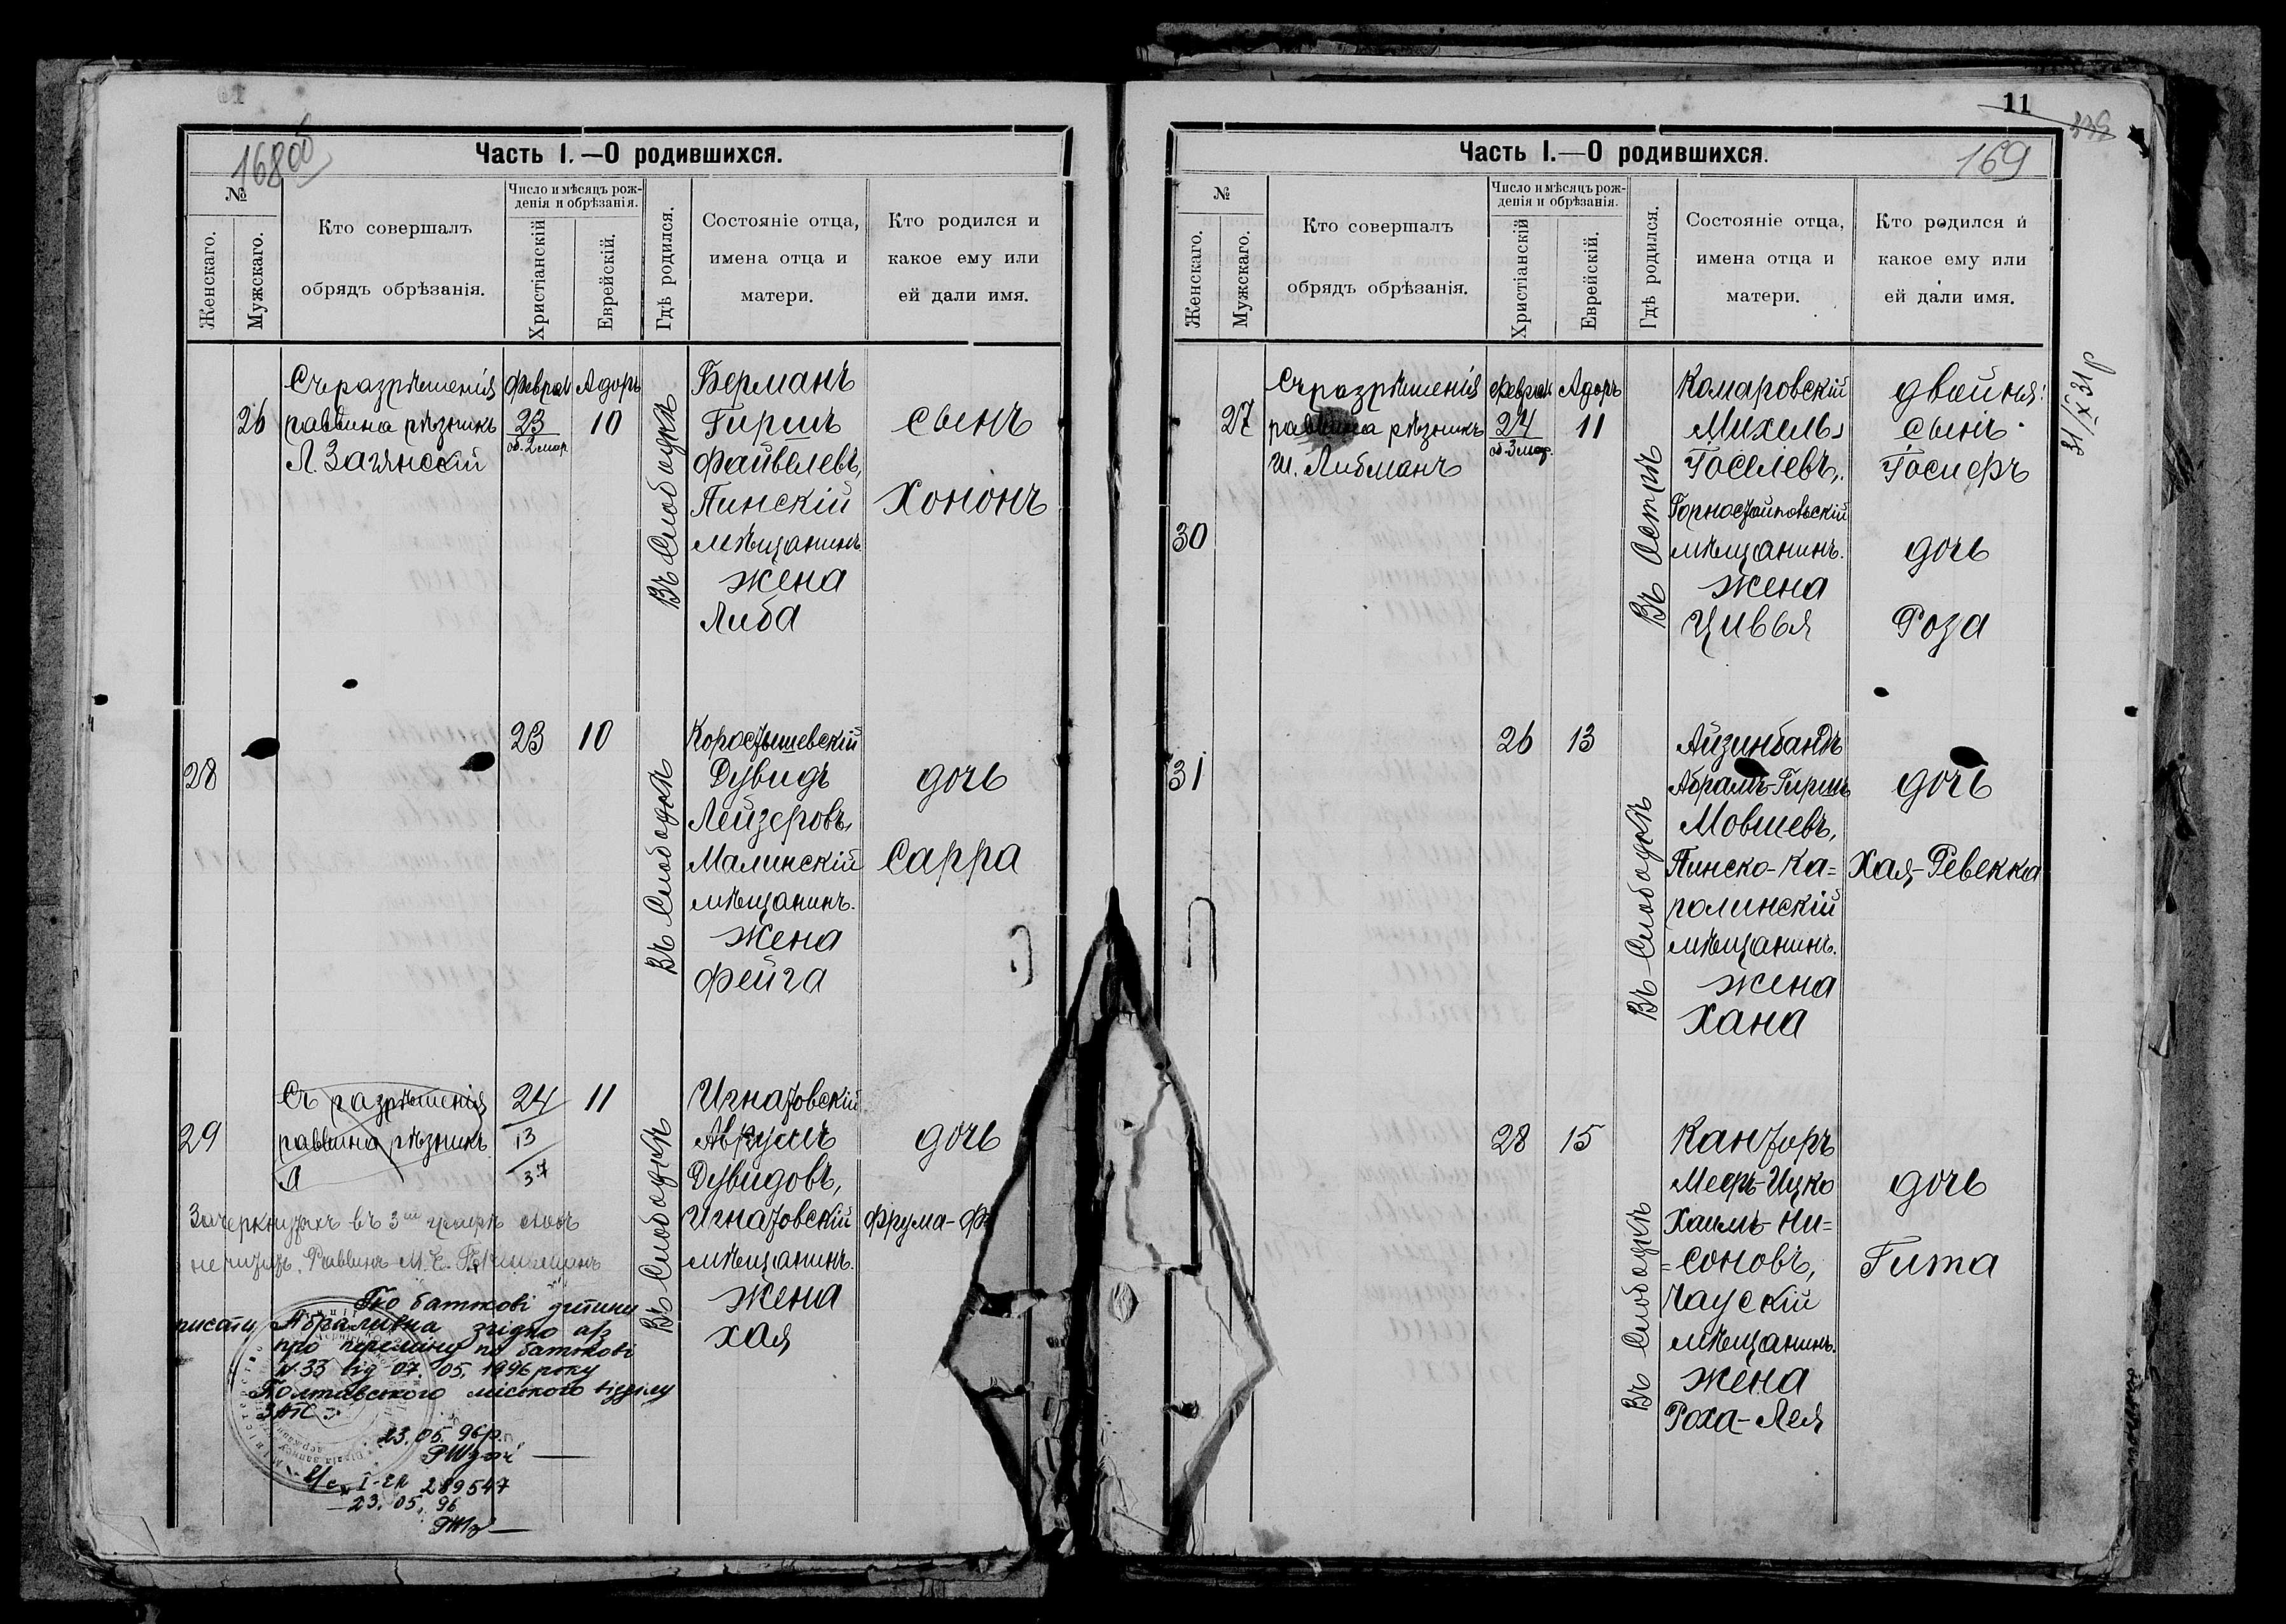 168 об
Часть I.—О родившихся.
№
Женскаго.
Мужскаго.
Кто совершалъ
обрядъ обрѣзанія.
Число и мѣсяцъ рож-
денія и обрѣзанія.
Христіанскій
Еврейскій.
Гдѣ родился.
Состояніе отца,
имена отца и
матери.
Кто родился и
какое ему или
ей дали имя.
26
Съ разрѣшенія
раввина рѣзникъ
Л.
Феврал
23
об. 2 мар.
Адоръ
10
Въ Слободкѣ
Берманъ
Гиршъ
Файвелевъ,
Пинскій
мѣщанинъ
жена
Либа
сынъ
Хононъ
28
23
10
Въ Слободкѣ
Коростышевскій
Дувидъ
Лейзеровъ,
Малинскій
мѣщанинъ.
жена
Фейга
дочь
Сарра
29
Съ разрѣшенія
раввина рѣзникъ
Л
24
13
37
11
Въ Слободкѣ
Игнатовскій
Аврумъ
Дувидовъ,
Игнатовскій
мѣщанинъ.
жена
Хая
дочь
Фрума-Ф
Зачеркнутыхъ въ 3ей графѣ словъ
не читать. Раввинъ М. Е.
По батькові дитини
писати Абрамівна згідно а/з
про переміну по батькові
№ 33 від 07. 05. 1996 року
Полтавського міського відділу
ЗАГС
23. 05. 96р.
289547
23. 05. 96
11
338
Часть I.—О родившихся.
169
№
Женскаго.
Мужскаго.
Кто совершалъ
обрядъ обрѣзанія.
Число и мѣсяцъ рож-
денія и обрѣзанія.
Христіанскій
Еврейскій.
Гдѣ родился.
Состояніе отца,
имена отца и
матери.
Кто родился и
какое ему или
ей дали имя.
31/X 31 р
27
30
Съ разрѣшенія
раввина рѣзникъ
Ш. Либманъ
Феврал
24
об. 3 мар.
Адоръ
11
Въ Астрѣ
Комаровскій
Михель
Іоселевъ,
Горностайпольскій
мѣщанинъ.
жена
Цивья
двойня:
сынъ
Іосифъ
дочь
Роза
31
26
13
Въ Слободкѣ
Айзинбандъ
Абрамъ-Гиршъ
Мовшевъ,
Пинско-Ка=
ролинскій
мѣщанинъ.
жена
Хана
дочь
Хая-Ревекка
28
15
Въ Слободкѣ
Канторъ
Мееръ-Ицко
Хаимъ-Ни=
=соновъ,
Чаускій
мѣщанинъ.
жена
Роха-Лея
дочь
Гита